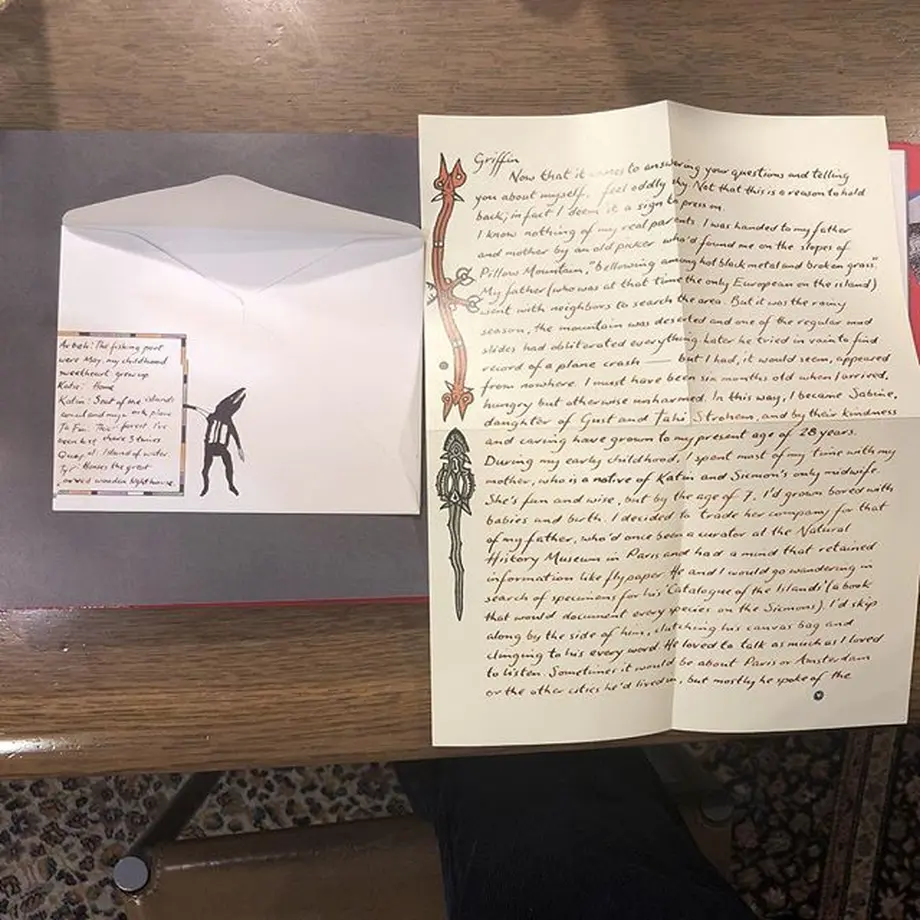 Arbeh: The fishing port
were May, my childhood
sweetheart grew up.
Katie: Home
Katin: Seat of the islands
council and major
To Fin: This forest I've
been lost there 3 times
Quay al: Island of water.
Typ: Houses the great
carved wooden lighthouse.
Griffin
Now that it comes to answering your questions and telling
you about myself, feel oddly shy. Not that this is a reason to hold
back; in fact I deem it a sign to press on.
I know nothing of my real parents. I was handed to my father
and mother by an old picker who'd found me on the slopes of
Pillow Mountain, "bellowing among hot black metal and broken grass."
My father (who was at that time the only European on the island)
went with neighbors to search the area. But it was the rainy
season, the mountain was deserted and one of the regular mud
slides had obliterated everything. Later he tried in vain to find
record of a plane crash — but I had, it would seem, appeared
from nowhere. I must have been six months old when I arrived,
hungry but otherwise unharmed. In this way, I became Sabine,
daughter of Gust and Tahi Strohem, and by their kindness
and caring have grown to my present age of 28 years.
During my early childhood, I spent most of my time with my
mother, who is a native of Katin and Sicmon's only midwife.
She's fun and wise, but by the age of 7, I'd grown bored with
babies and birth. I decided to trade her company for that
of my father, who'd once been a curator at the Natural
History Museum in Paris and had a mind that retained
information like flypaper. He and I would go wandering in
search of specimens for his 'Catalogue of the Islands' (a book
that would document every species on the Sicmons). I'd skip
along by the side of him, clutching his canvas bag and
clinging to his every word. He loved to talk as much as I loved
to listen. Sometimes it would be about Paris or Amsterdam
or the other cities he'd lived in, but mostly he spoke of the